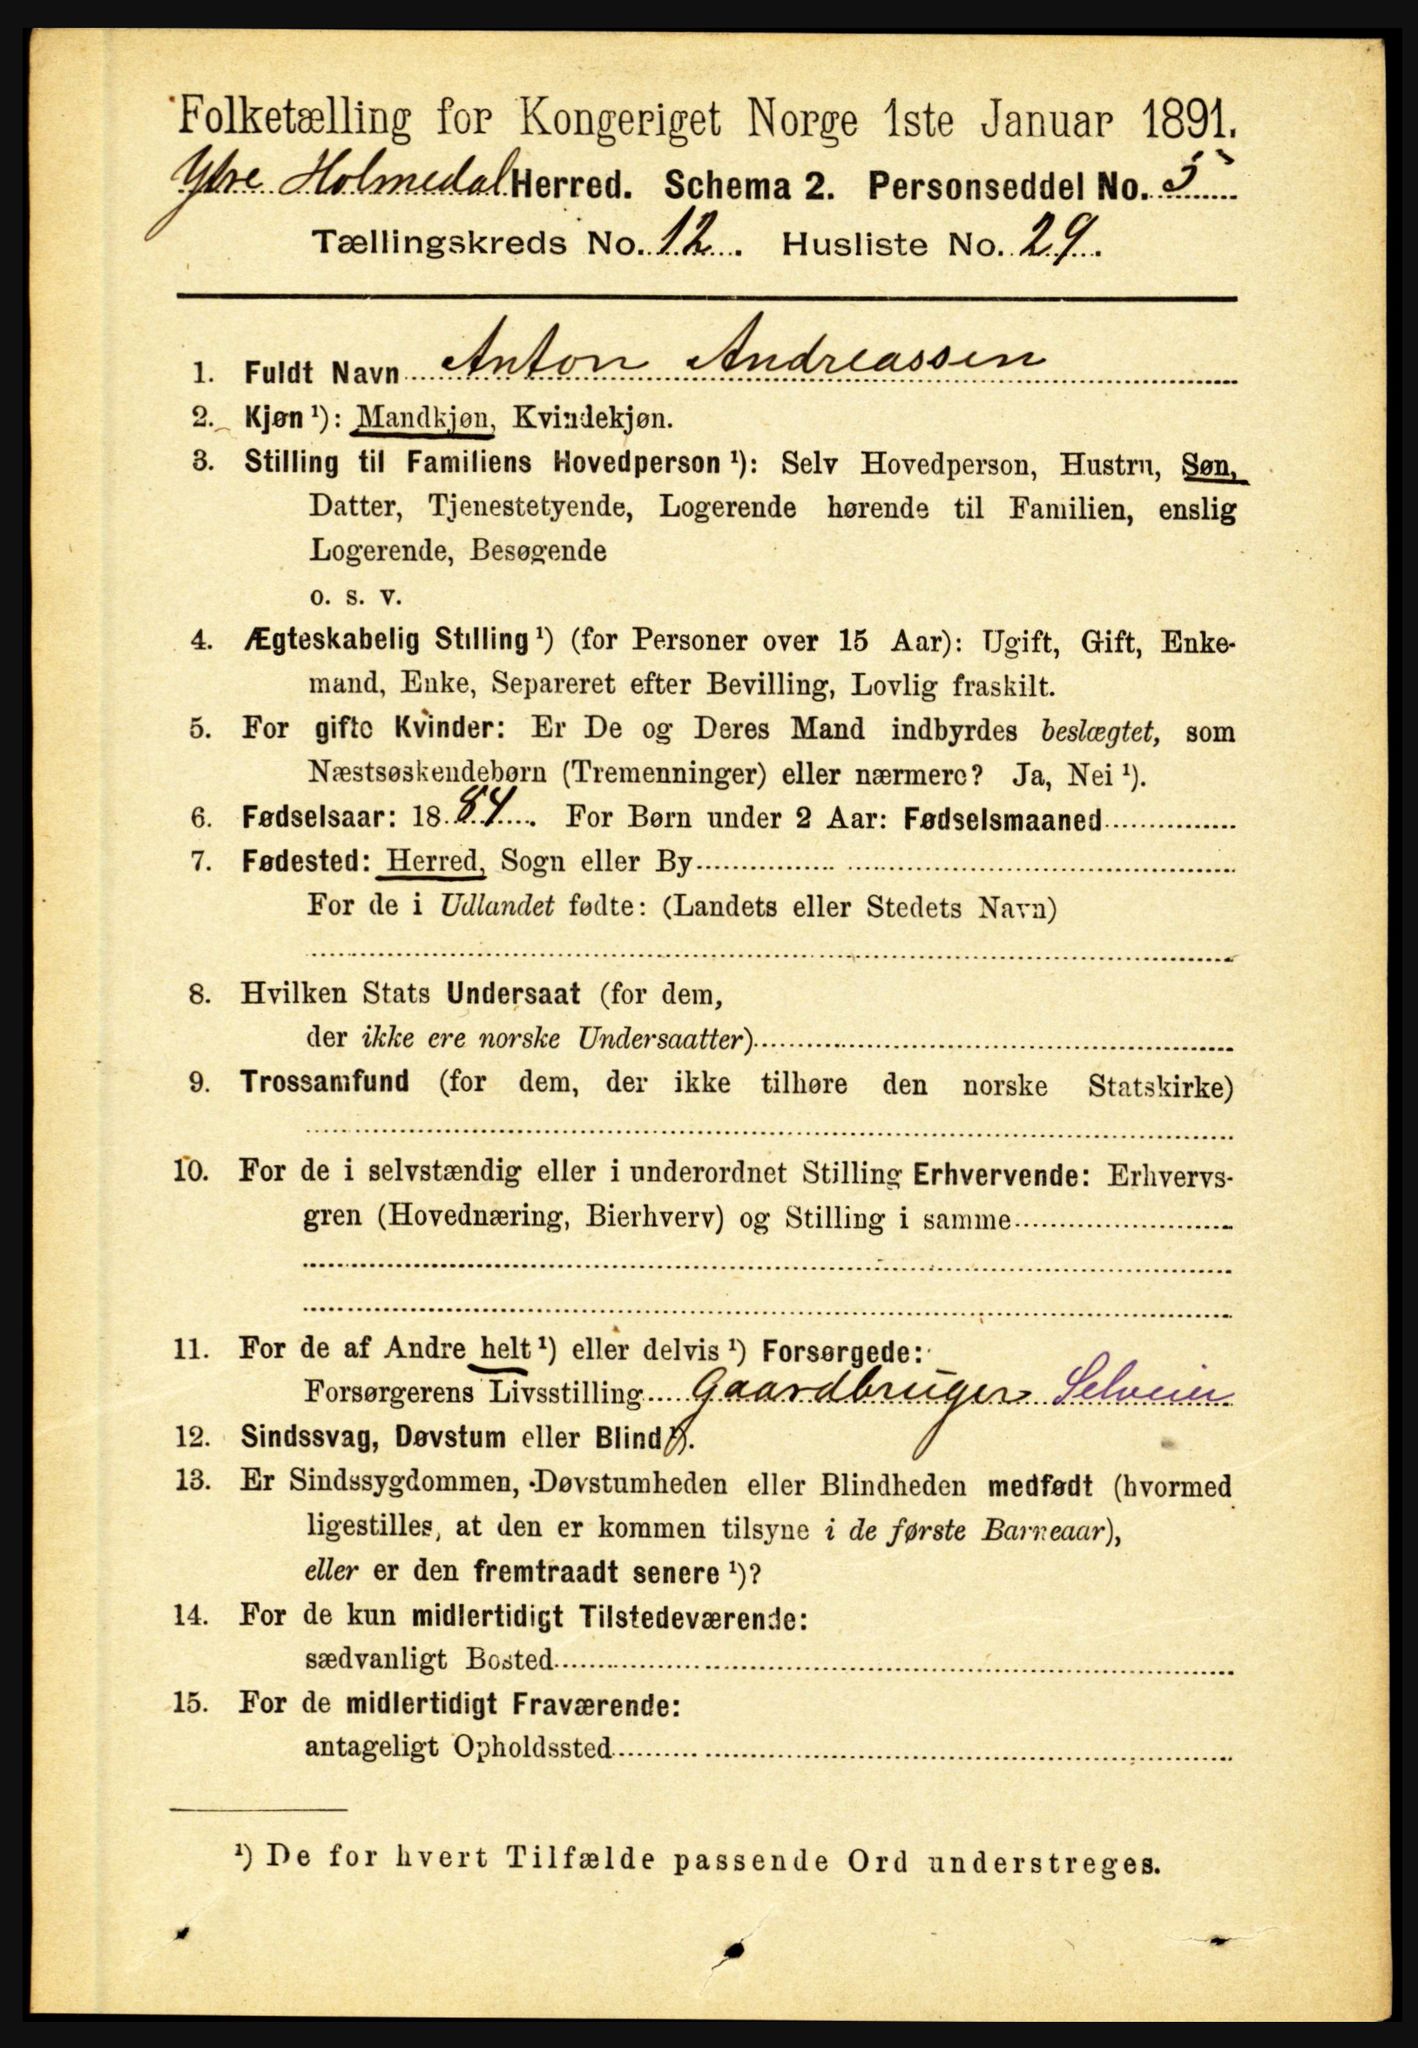 Folketælling for Kongeriget Norge 1ste Januar 1891.
Ytre Holmedal Herred. Schema 2. Personseddel No. 5
Tællingskreds No. 12. Husliste No. 29.
1. Fuldt Navn Anton Andreassen
2. Kjøn ¹): Mandkjøn, Kvindekjøn.
3. Stilling til Familiens Hovedperson ¹): Selv Hovedperson, Hustru, Søn,
Datter, Tjenestetyende, Logerende hørende til Familien, enslig
Logerende, Besøgende
o. s. v.
4. Ægteskabelig Stilling ¹) (for Personer over 15 Aar): Ugift, Gift, Enke-
mand, Enke, Separeret efter Bevilling, Lovlig fraskilt.
5. For gifte Kvinder: Er De og Deres Mand indbyrdes beslægtet, som
Næstsøskendebørn (Tremenninger) eller nærmere? Ja, Nei ¹).
6. Fødselsaar: 1884. For Børn under 2 Aar: Fødselsmaaned
7. Fødested: Herred, Sogn eller By
For de i Udlandet fødte: (Landets eller Stedets Navn)
8. Hvilken Stats Undersaat (for dem,
der ikke ere norske Undersaatter)
9. Trossamfund (for dem, der ikke tilhøre den norske Statskirke)
10. For de i selvstændig eller i underordnet Stilling Erhvervende: Erhvervs-
gren (Hovednæring, Bierhverv) og Stilling i samme
11. For de af Andre helt ¹) eller delvis ¹) Forsørgede:
Forsørgerens Livsstilling Gaardbruger Selveier
12. Sindssvag, Døvstum eller Blind ¹).
13. Er Sindssygdommen, Døvstumheden eller Blindheden medfødt (hvormed
ligestilles, at den er kommen tilsyne i de første Barneaar),
eller er den fremtraadt senere ¹)?
14. For de kun midlertidigt Tilstedeværende:
sædvanligt Bosted
15. For de midlertidigt Fraværende:
antageligt Opholdssted
¹) De for hvert Tilfælde passende Ord understreges.